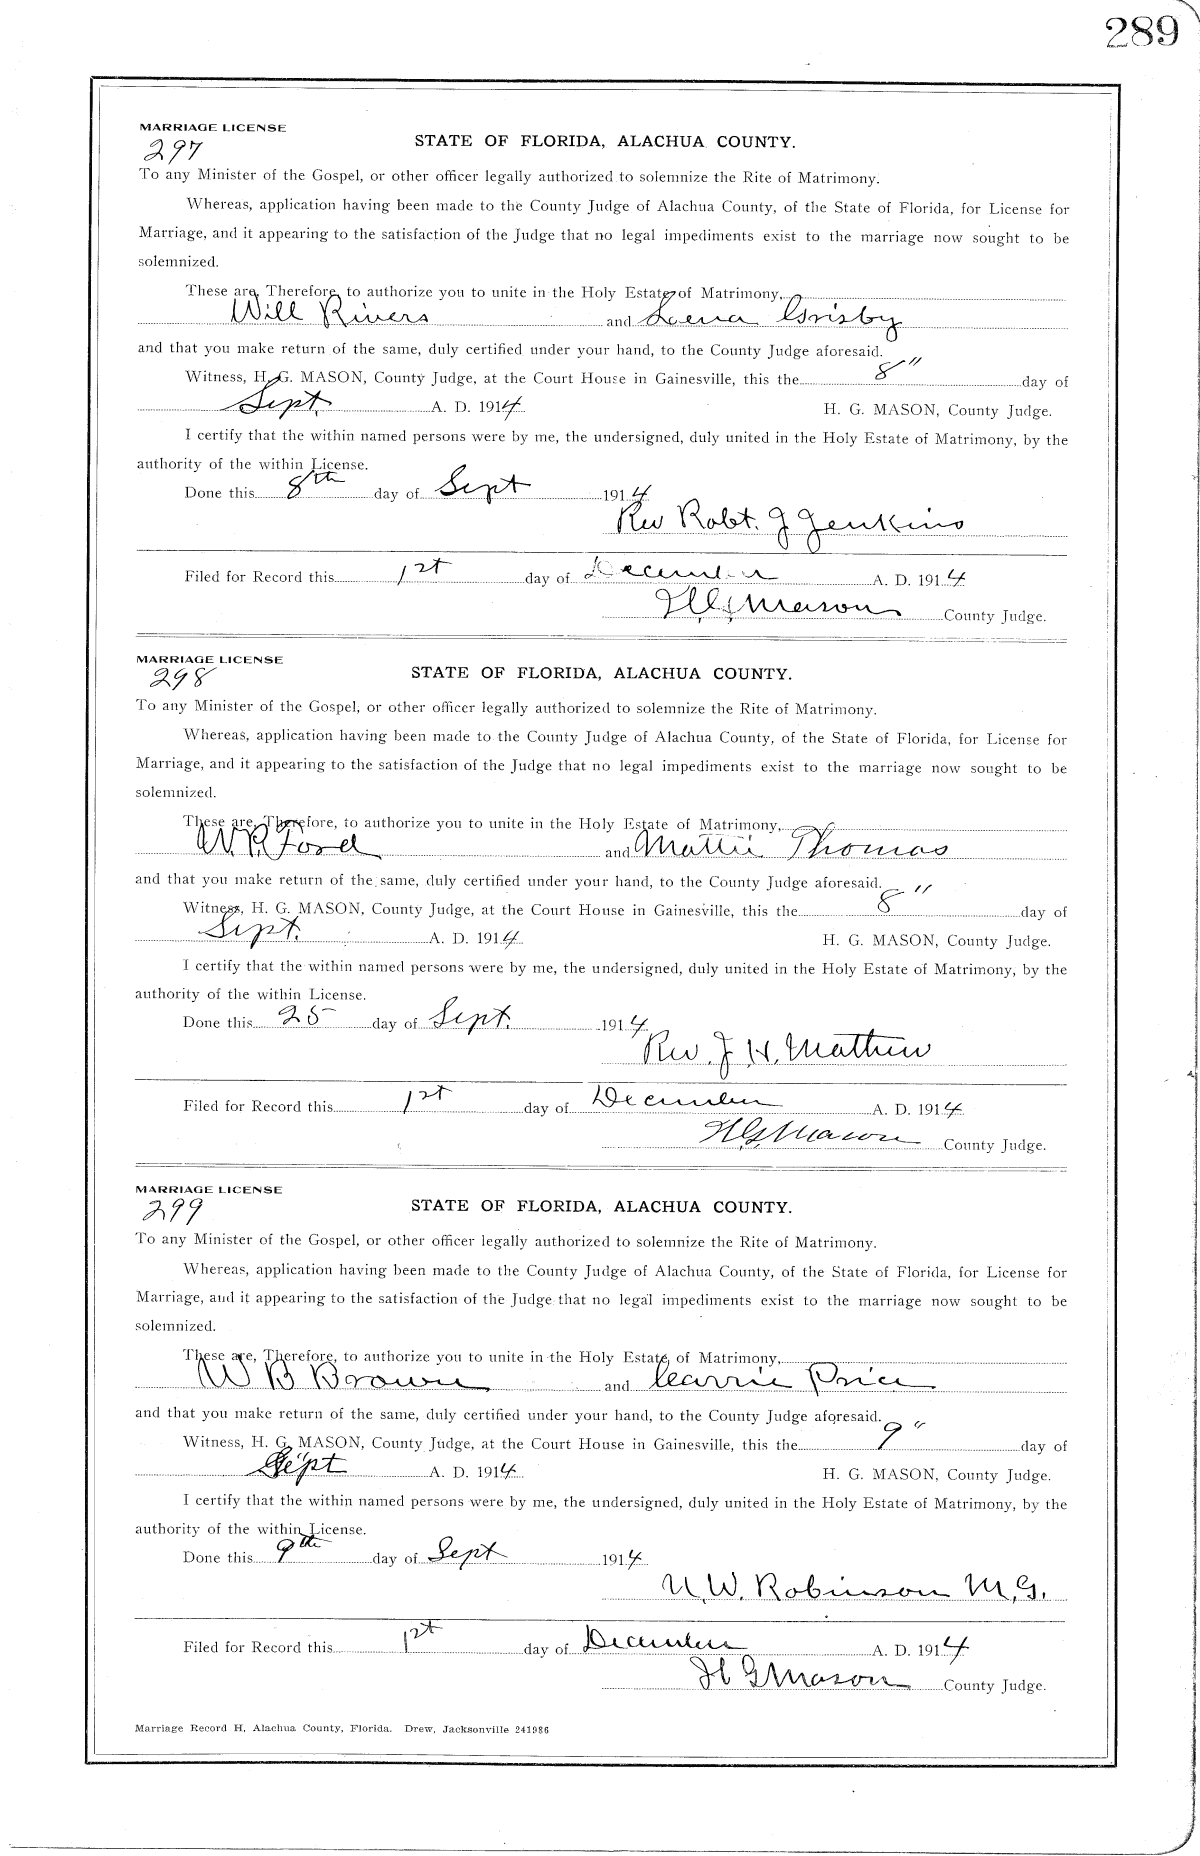 289
MARRIAGE LICENSE
297
STATE OF FLORIDA, ALACHUA COUNTY.
To any Minister of the Gospel, or other officer legally authorized to solemnize the Rite of Matrimony.
Whereas, application having been made to the County Judge of Alachua County, of the State of Florida, for License for
Marriage, and it appearing to the satisfaction of the Judge that no legal impediments exist to the marriage now sought to be
solemnized.
These are, Therefore, to authorize you to unite in the Holy Estate of Matrimony,
Will Rivers and Leena Grisby
and that you make return of the same, duly certified under your hand, to the County Judge aforesaid.
Witness, H. G. MASON, County Judge, at the Court House in Gainesville, this the 8" day of
Sept. A. D. 1914 H. G. MASON, County Judge.
I certify that the within named persons were by me, the undersigned, duly united in the Holy Estate of Matrimony, by the
authority of the within License.
Done this 8th day of Sept 1914
Rev Robt. J Jenkins
Filed for Record this 1st day of December A. D. 1914
H.G. Mason County Judge.
MARRIAGE LICENSE
298
STATE OF FLORIDA, ALACHUA COUNTY.
To any Minister of the Gospel, or other officer legally authorized to solemnize the Rite of Matrimony.
Whereas, application having been made to the County Judge of Alachua County, of the State of Florida, for License for
Marriage, and it appearing to the satisfaction of the Judge that no legal impediments exist to the marriage now sought to be
solemnized.
These are, Therefore, to authorize you to unite in the Holy Estate of Matrimony,
W.P. Ford and Mattie Thomas
and that you make return of the same, duly certified under your hand, to the County Judge aforesaid.
Witness, H. G. MASON, County Judge, at the Court House in Gainesville, this the 8" day of
Sept. A. D. 1914 H. G. MASON, County Judge.
I certify that the within named persons were by me, the undersigned, duly united in the Holy Estate of Matrimony, by the
authority of the within License.
Done this 25 day of Sept. 1914
Rev. J. H. Mathew
Filed for Record this 1st day of December A. D. 1914
H.G. Mason County Judge.
MARRIAGE LICENSE
299
STATE OF FLORIDA, ALACHUA COUNTY.
To any Minister of the Gospel, or other officer legally authorized to solemnize the Rite of Matrimony.
Whereas, application having been made to the County Judge of Alachua County, of the State of Florida, for License for
Marriage, and it appearing to the satisfaction of the Judge that no legal impediments exist to the marriage now sought to be
solemnized.
These are, Therefore, to authorize you to unite in the Holy Estate of Matrimony,
W B Brown and Carrie Price
and that you make return of the same, duly certified under your hand, to the County Judge aforesaid.
Witness, H. G. MASON, County Judge, at the Court House in Gainesville, this the 9" day of
Sept A. D. 1914 H. G. MASON, County Judge.
I certify that the within named persons were by me, the undersigned, duly united in the Holy Estate of Matrimony, by the
authority of the within License.
Done this 9th day of Sept 1914
N. W. Robinson M.G.
Filed for Record this 1st day of December A. D. 1914
H G Mason County Judge.
Marriage Record H, Alachua County, Florida. Drew, Jacksonville 241986